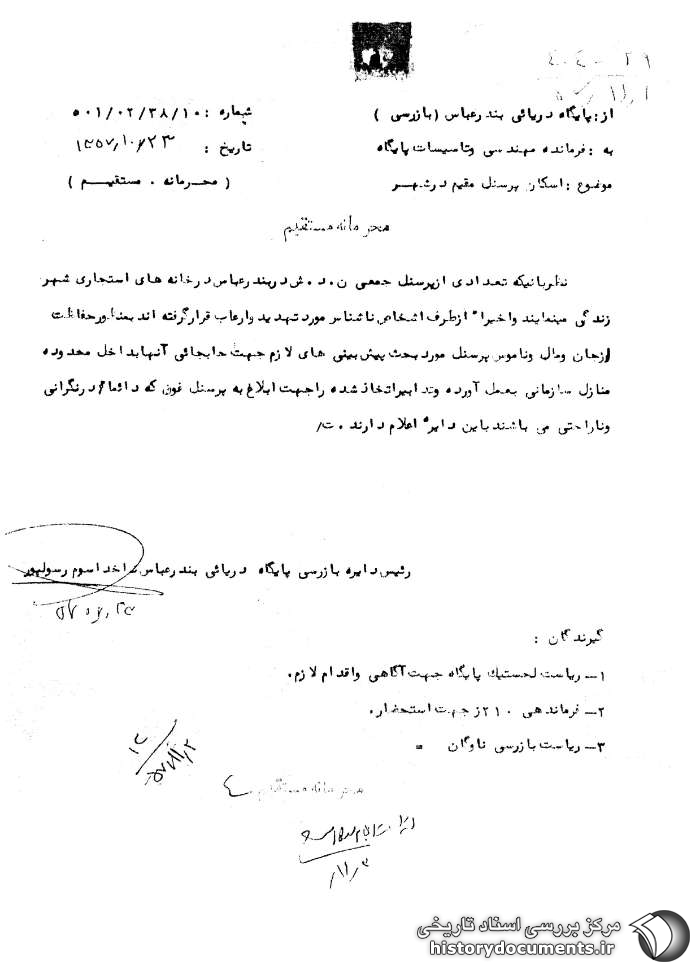 از: پایگاه دریائی بندرعباس (بازرسی )
شماره : ۵۰۱/۰۲/۳۸/۱۰
به : فرمانده مهندسی وتاسیسات پایگاه
تاریخ :
موضوع : اسکان پرسنل مقیم درشهر
( محرمانه . مستقیم )
محرمانه مستقیم
نظرباینکه تعدادی ازپرسنل جمعی ن.د.ش دربندرعباس درخانه های استجاری شهر
زندگی مینمایند واخیراً ازطرف اشخاص ناشناس مورد تهدید وارعاب قرارگرفته اند بمنظورحفاظت
ازجان ومال وناموس پرسنل مورد بحث پیش بینی های لازم جهت جابجائی آنها بداخل محدوده
منازل سازمانی بعمل آورده وتدابیراتخاذ شده راجهت ابلاغ به پرسنل فوق که دائماً درنگرانی
وناراحتی می باشند باین دایره اعلام دارند .ت/
رئیس دایره بازرسی پایگاه دریائی بندرعباس رسولپور
گیرندگان :
۱- ریاست لجستیك پایگاه جهت آگاهی واقدام لازم.
۲- فرماندهی ۲۱۰ز جهت استحضار.
۳- ریاست بازرسی ناوگان =
محرمانه مستقیم
مرکز بررسی اسناد تاریخی
historydocuments.ir